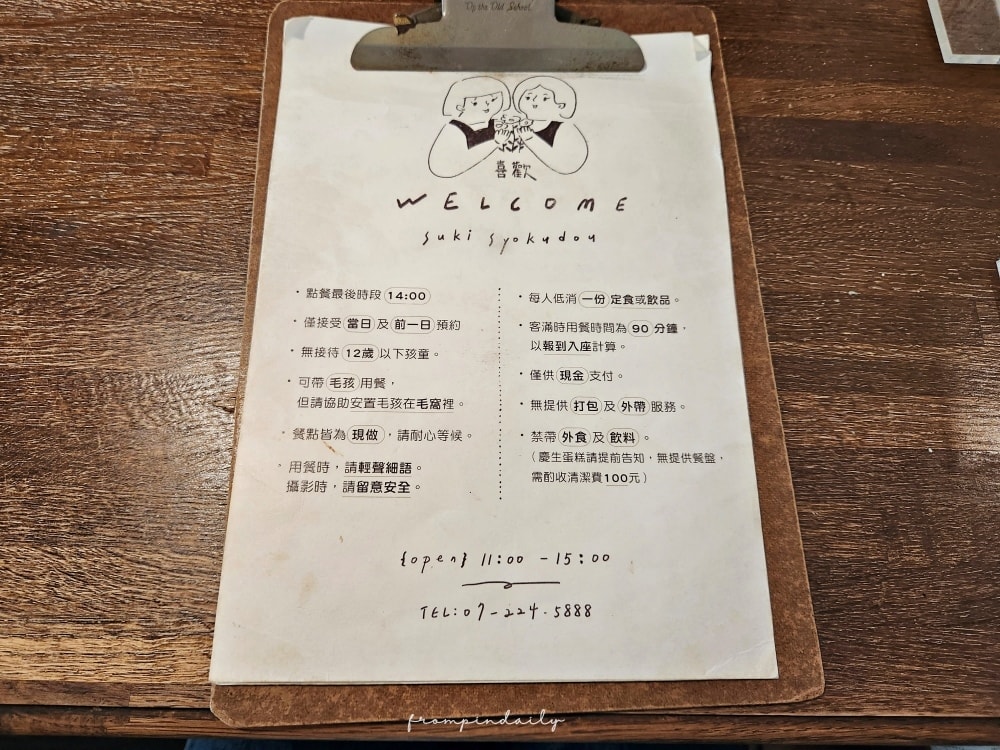 Up the Old School
喜歡
WELCOME
suki syokudou
・點餐最後時段 14:00
・僅接受 當日 及 前一日 預約
・無接待 12歲 以下孩童。
・可帶 毛孩 用餐，
但請協助安置毛孩在毛窩裡。
・餐點皆為 現做，請耐心等候。
・用餐時，請輕聲細語。
攝影時，請留意安全。
・每人低消 一份 定食或飲品。
・客滿時用餐時間為 90 分鐘，
以報到入座計算。
・僅供 現金 支付。
・無提供 打包 及 外帶 服務。
・禁帶 外食 及 飲料。
（慶生蛋糕請提前告知，無提供餐盤，
需酌收清潔費100元）
{open} 11:00 - 15:00
TEL:07-224-5888
frompindaily